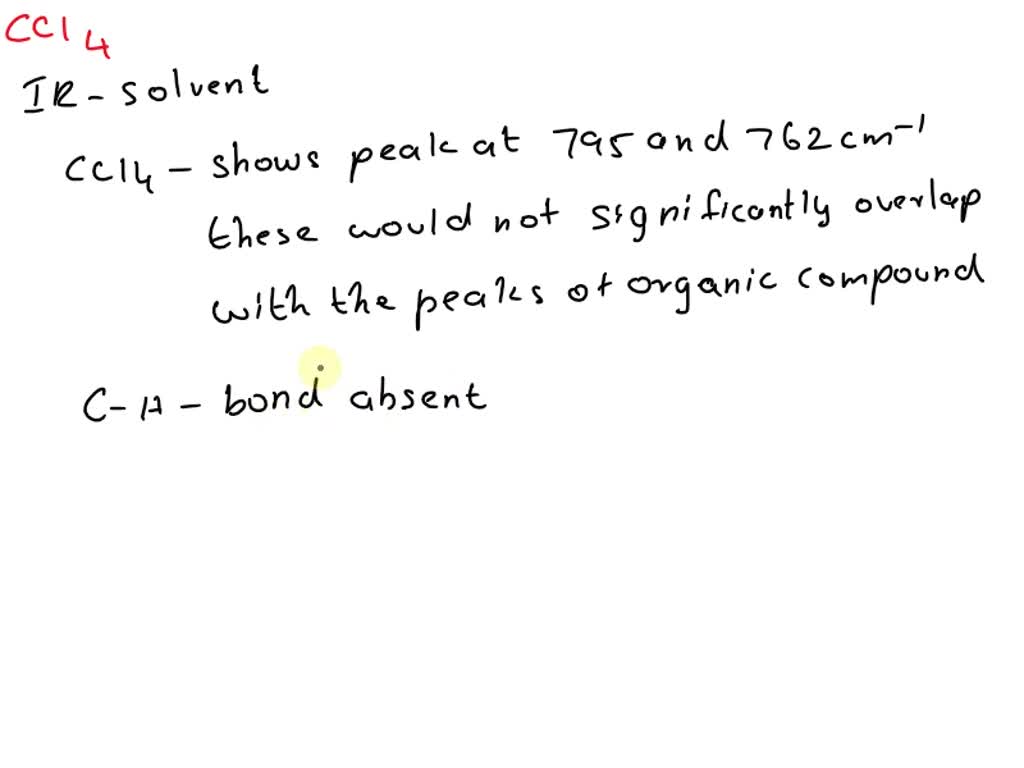 CCl4
IR - solvent
CCl4 - shows peak at 795 and 762 cm-1
these would not significantly overlap
with the peaks of organic compound
C-H - bond absent